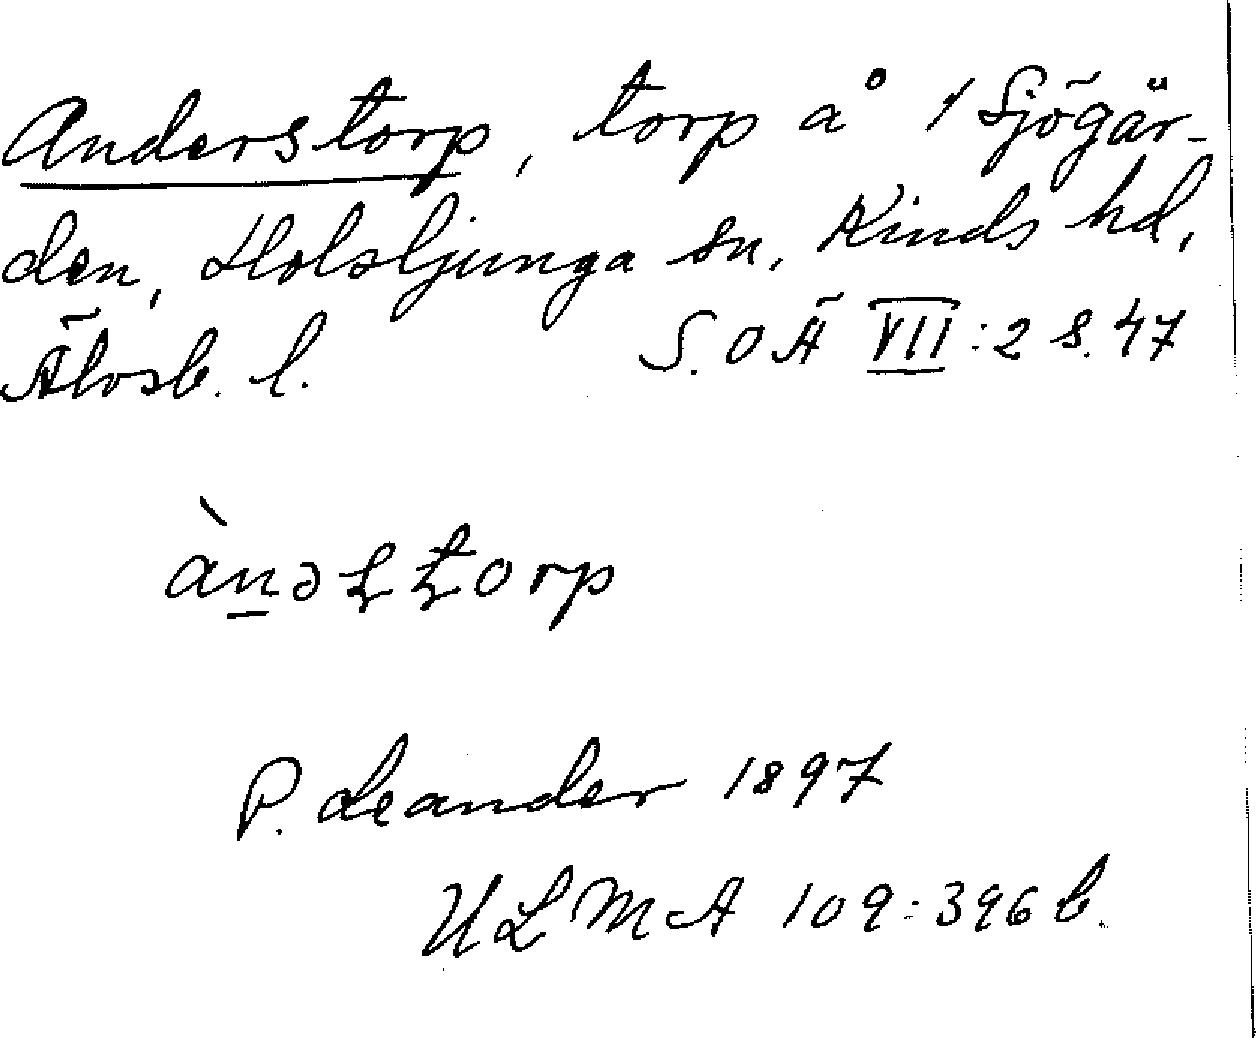 Anderstorp, torp å 1/ Sjögär-
den, Holsljunga sn, Kinds hd,
Älvsb. l. S.O Ä VII:2 s. 47
P. Leander 1897
ULMA 109:396 b.